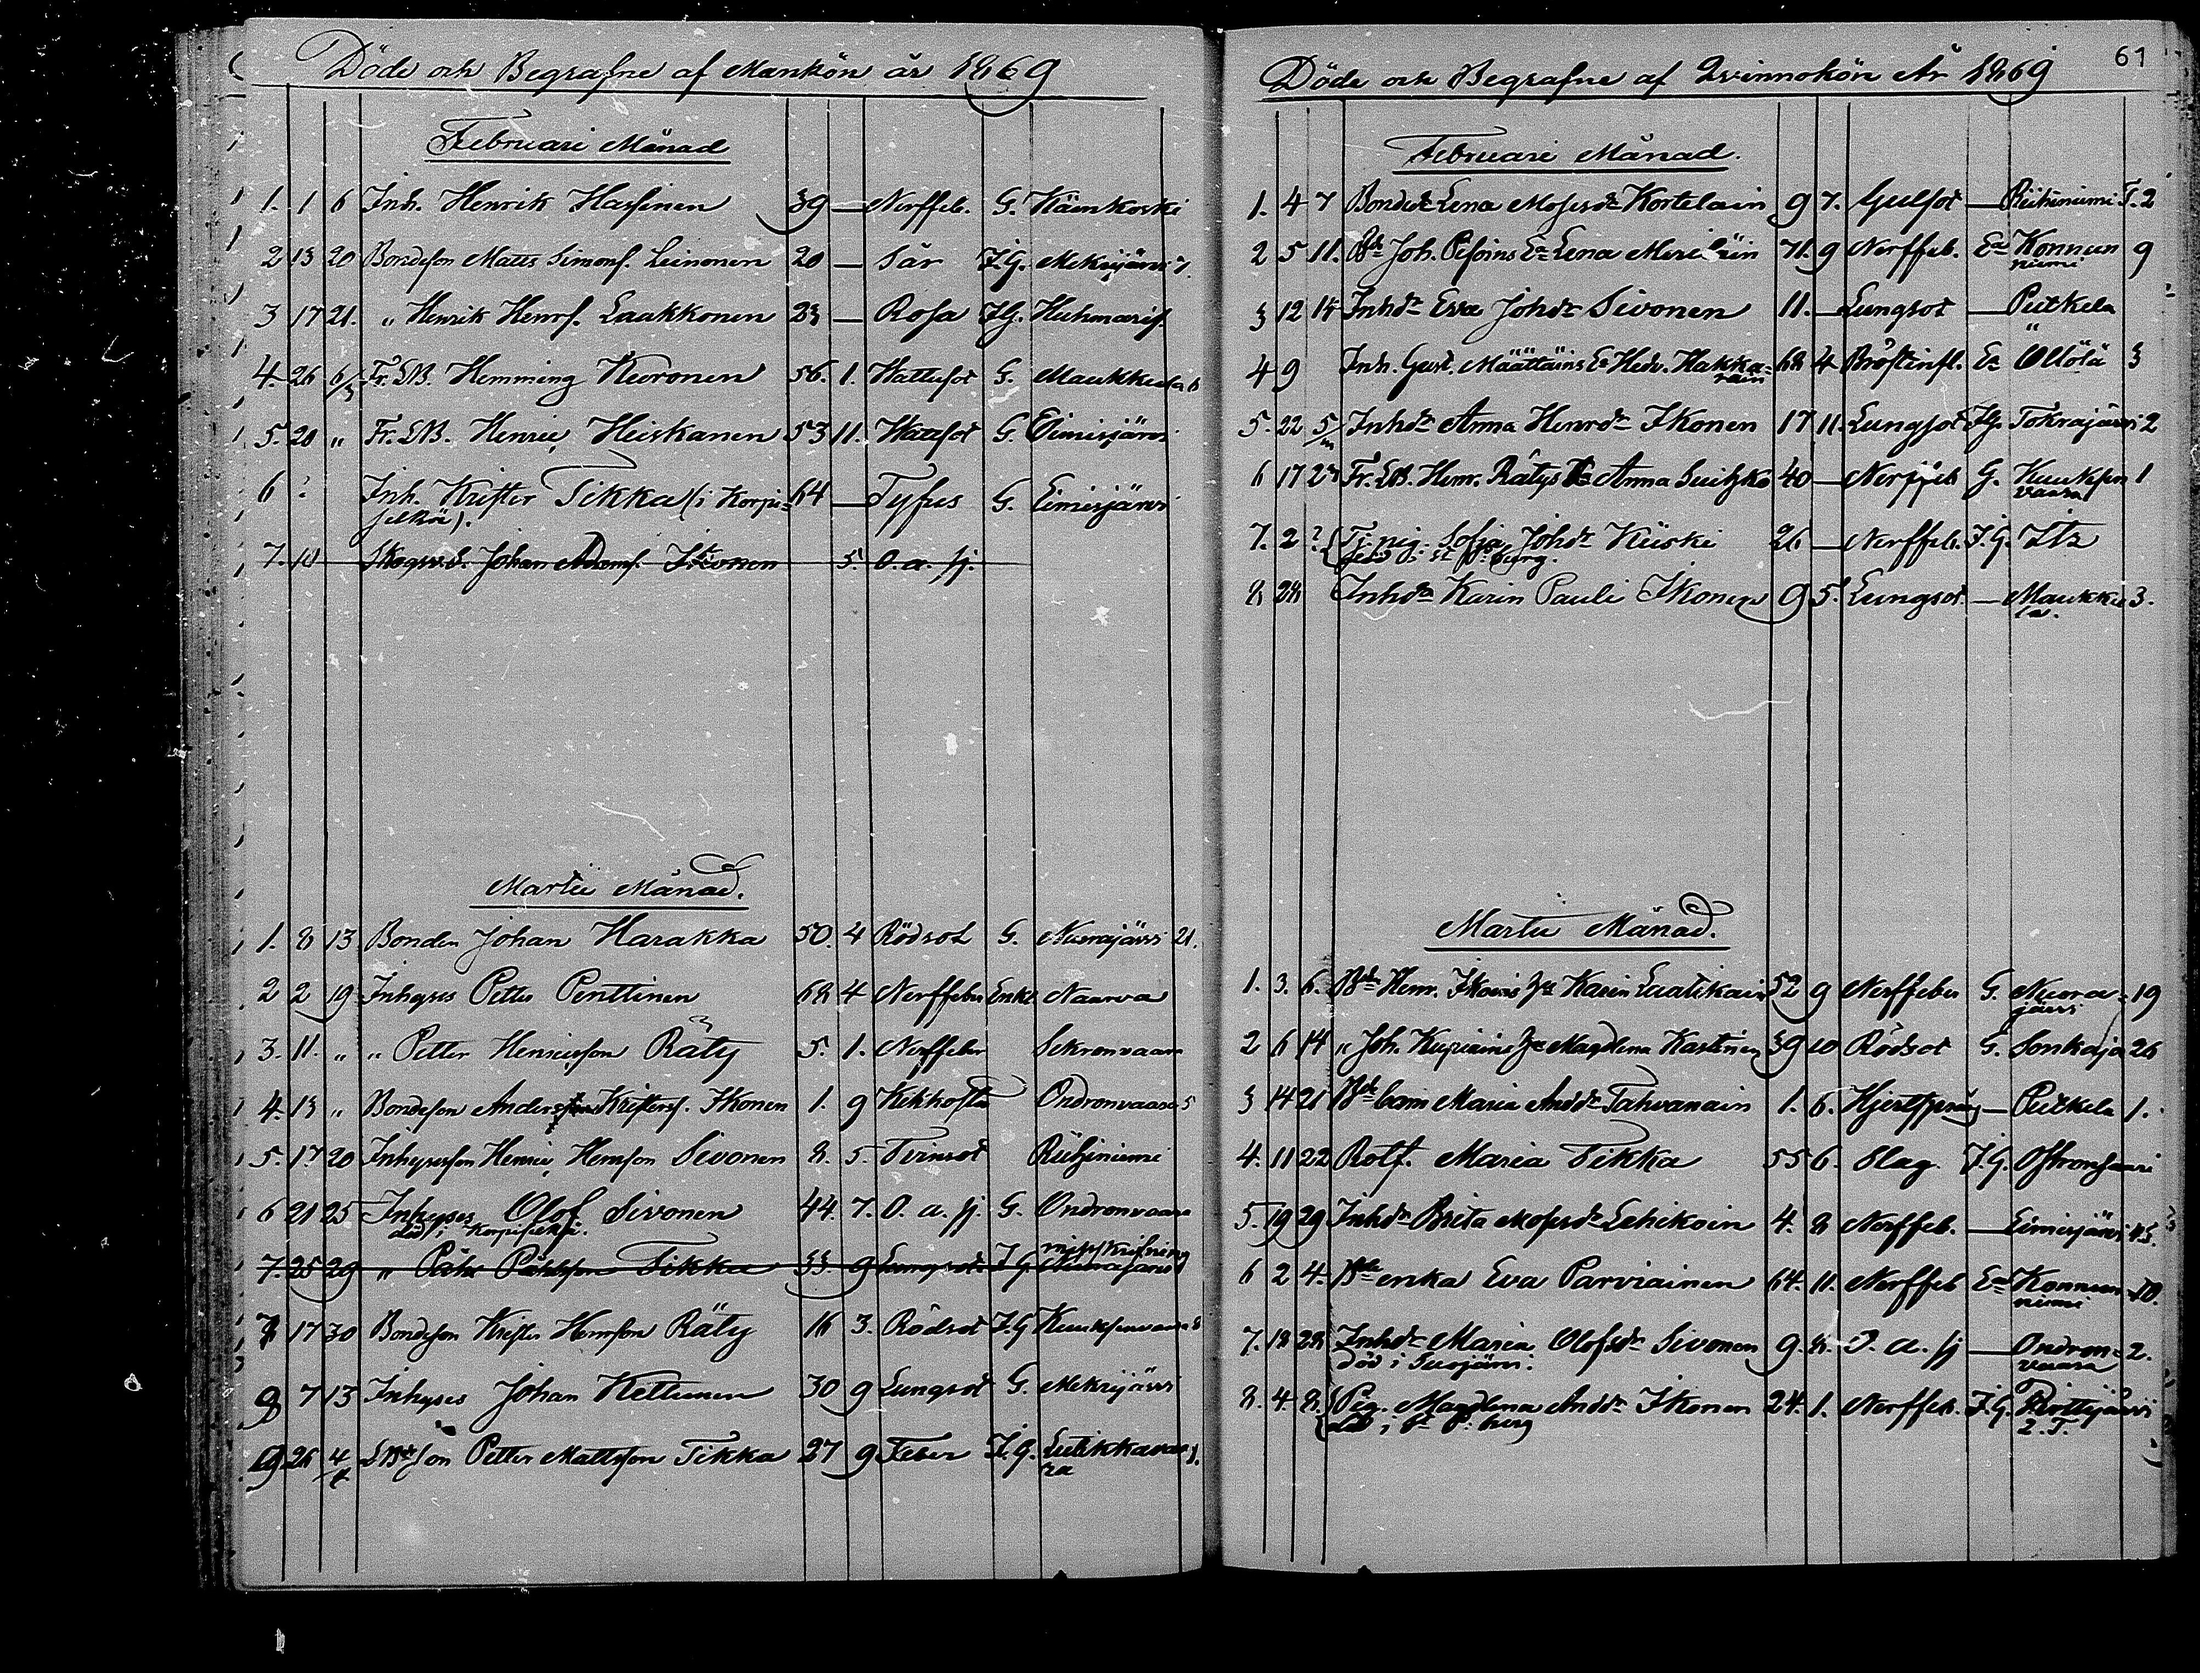 Döde och Begrafne af Mankön år 1869
Februari Månad
1. 1 6 Inh. Henrik Hassinen 39 — Nerffeb. G. Hämkoski
2 13 20 Bondeson Matts Simons. Leinonen 20 — Sår I.G. Mekrijärvi 7.
3 17 21. " Henrik Henrs. Laakkonen 23 — Rosa I.G. Huhmaris.
4. 26 6/3 Fr. LB. Hemming Huronen 56. 1. Hattsot G. Maukkula
5. 20 " Fr. LB. Henric Heiskanen 53 11. Wattsot G. Eimisjärvi
6 ? Inh. Krister Tikka (i Korpi- 64 — Tyfus G. Eimisjärvi
selkä).
7. 10 Skogsv. S. Johan Adams. Ikonen 5. O. a. sj.
Martii Månad.
1. 8 13 Bonden Johan Harakka 50. 4 Rödsot G. Nuorajärvi 21.
2 2 19 Inhyses Petter Penttinen 68 4 Nerffeber Enkl. Naarva
3. 11. " " Petter Henricsson Räty 5. 1. Nerffeber Sikronvaara
4. 13 " Bondeson Anders Kristers. Ikonen 1. 9 Kikhosta Ondronvaara 5
5. 17. 20 Inhysesson Henric Henrsson Sivonen 8. 5. Tvinsot Riihiniemi
6 21 25 Inhyses Olof Sivonen 44. 7. O. a. sj. G. Ondronvaara
död i Korpiselkä.
7. 25 29 " Påhl Påhlsson Tikka 33 9 Lungsot I G misskrifning Nuorajärvi
7 17 30 Bondeson Krister Henrsson Räty 16 3. Rödsot I.G Kuuksenvaara 8
8 7 13 Inhyses Johan Kettunen 30 9 Lungsot G. Mekrijärvi
9 26 4/4 LBdeson Petter Mattsson Tikka 27 9 Feber I. G. Lutikkavaa 1.
ra
61
Döde och Begrafne af Qvinnokön År 1869
Februari Månad.
1. 4 7 Bonded:r Lena Mosesd:r Kortelain 9 7. Gulsot — Riihiniemi T. 2
2 5 11. Bd. Joh. Pesoins E:a Lena Meriläin 71. 9 Nerffeb. E:a Konnun 9
niemi
3 12 14 Inhd:r Eva Johd:r Sivonen 11. — Lungsot — Putkela
4 9 Inh. Gust. Määttäins E:a Hedv. Hakka- 68 4 Bröstinfl. E:a Öllölä 3
rain
5. 22 5/3 Inhd:r Anna Henrd:r Ikonen 17 11. Lungsot I.G. Tokrajärvi 2
6 17 23 Fr. LB. Henr. Rätys H:a Anna Suitzko 40 — Nerffeb G. Kuuksen 1
vaara
7. 2 ? Ti. pig. Sofia Johd:r Kiiski 26 — Nerffeb. I.G. Itä
död i St P:burg.
8 28 Inhd:r Karin Pauli Ikonen 9 5. Lungsot. — Maukku 3.
la.
Martii Månad.
1. 3. 6. Bd:n Henr. Ikoins H:u Karin Luatikain 52 9 Nerffeber G. Nuora- 19
järvi
2 6 14 " Joh. Kupiains H:u Magdlena Kastinen 39 10 Rödsot G. Sonkaja 26
3 14 21 Bd:e barn Maria Andd:r Tahvanain 1. 6. Hjertsprång — Putkela 1.
4. 11 22 Rotf. Maria Tikka 55 6. Slag. I.G. Oskronsaari
5. 19 29 Inhd:r Brita Mosesd:r Lehikoin 4. 8 Nerffeb. — Eimisjärvi 15.
6 2 4. Bde enka Eva Parviainen 64. 11. Nerffeb E:a Konnun- 10.
niemi
7. 18 28 Inhd:r Maria Olofsd:r Sivonen 9. 8. O. a. sj — Ondron- 2.
död i Suojärvi. vaara
8. 4 8. Pig. Magdlena Andd:r Ikonen 24. 1. Nerffeb. I.G. Riittijärvi
död i St P:burg 2. T.